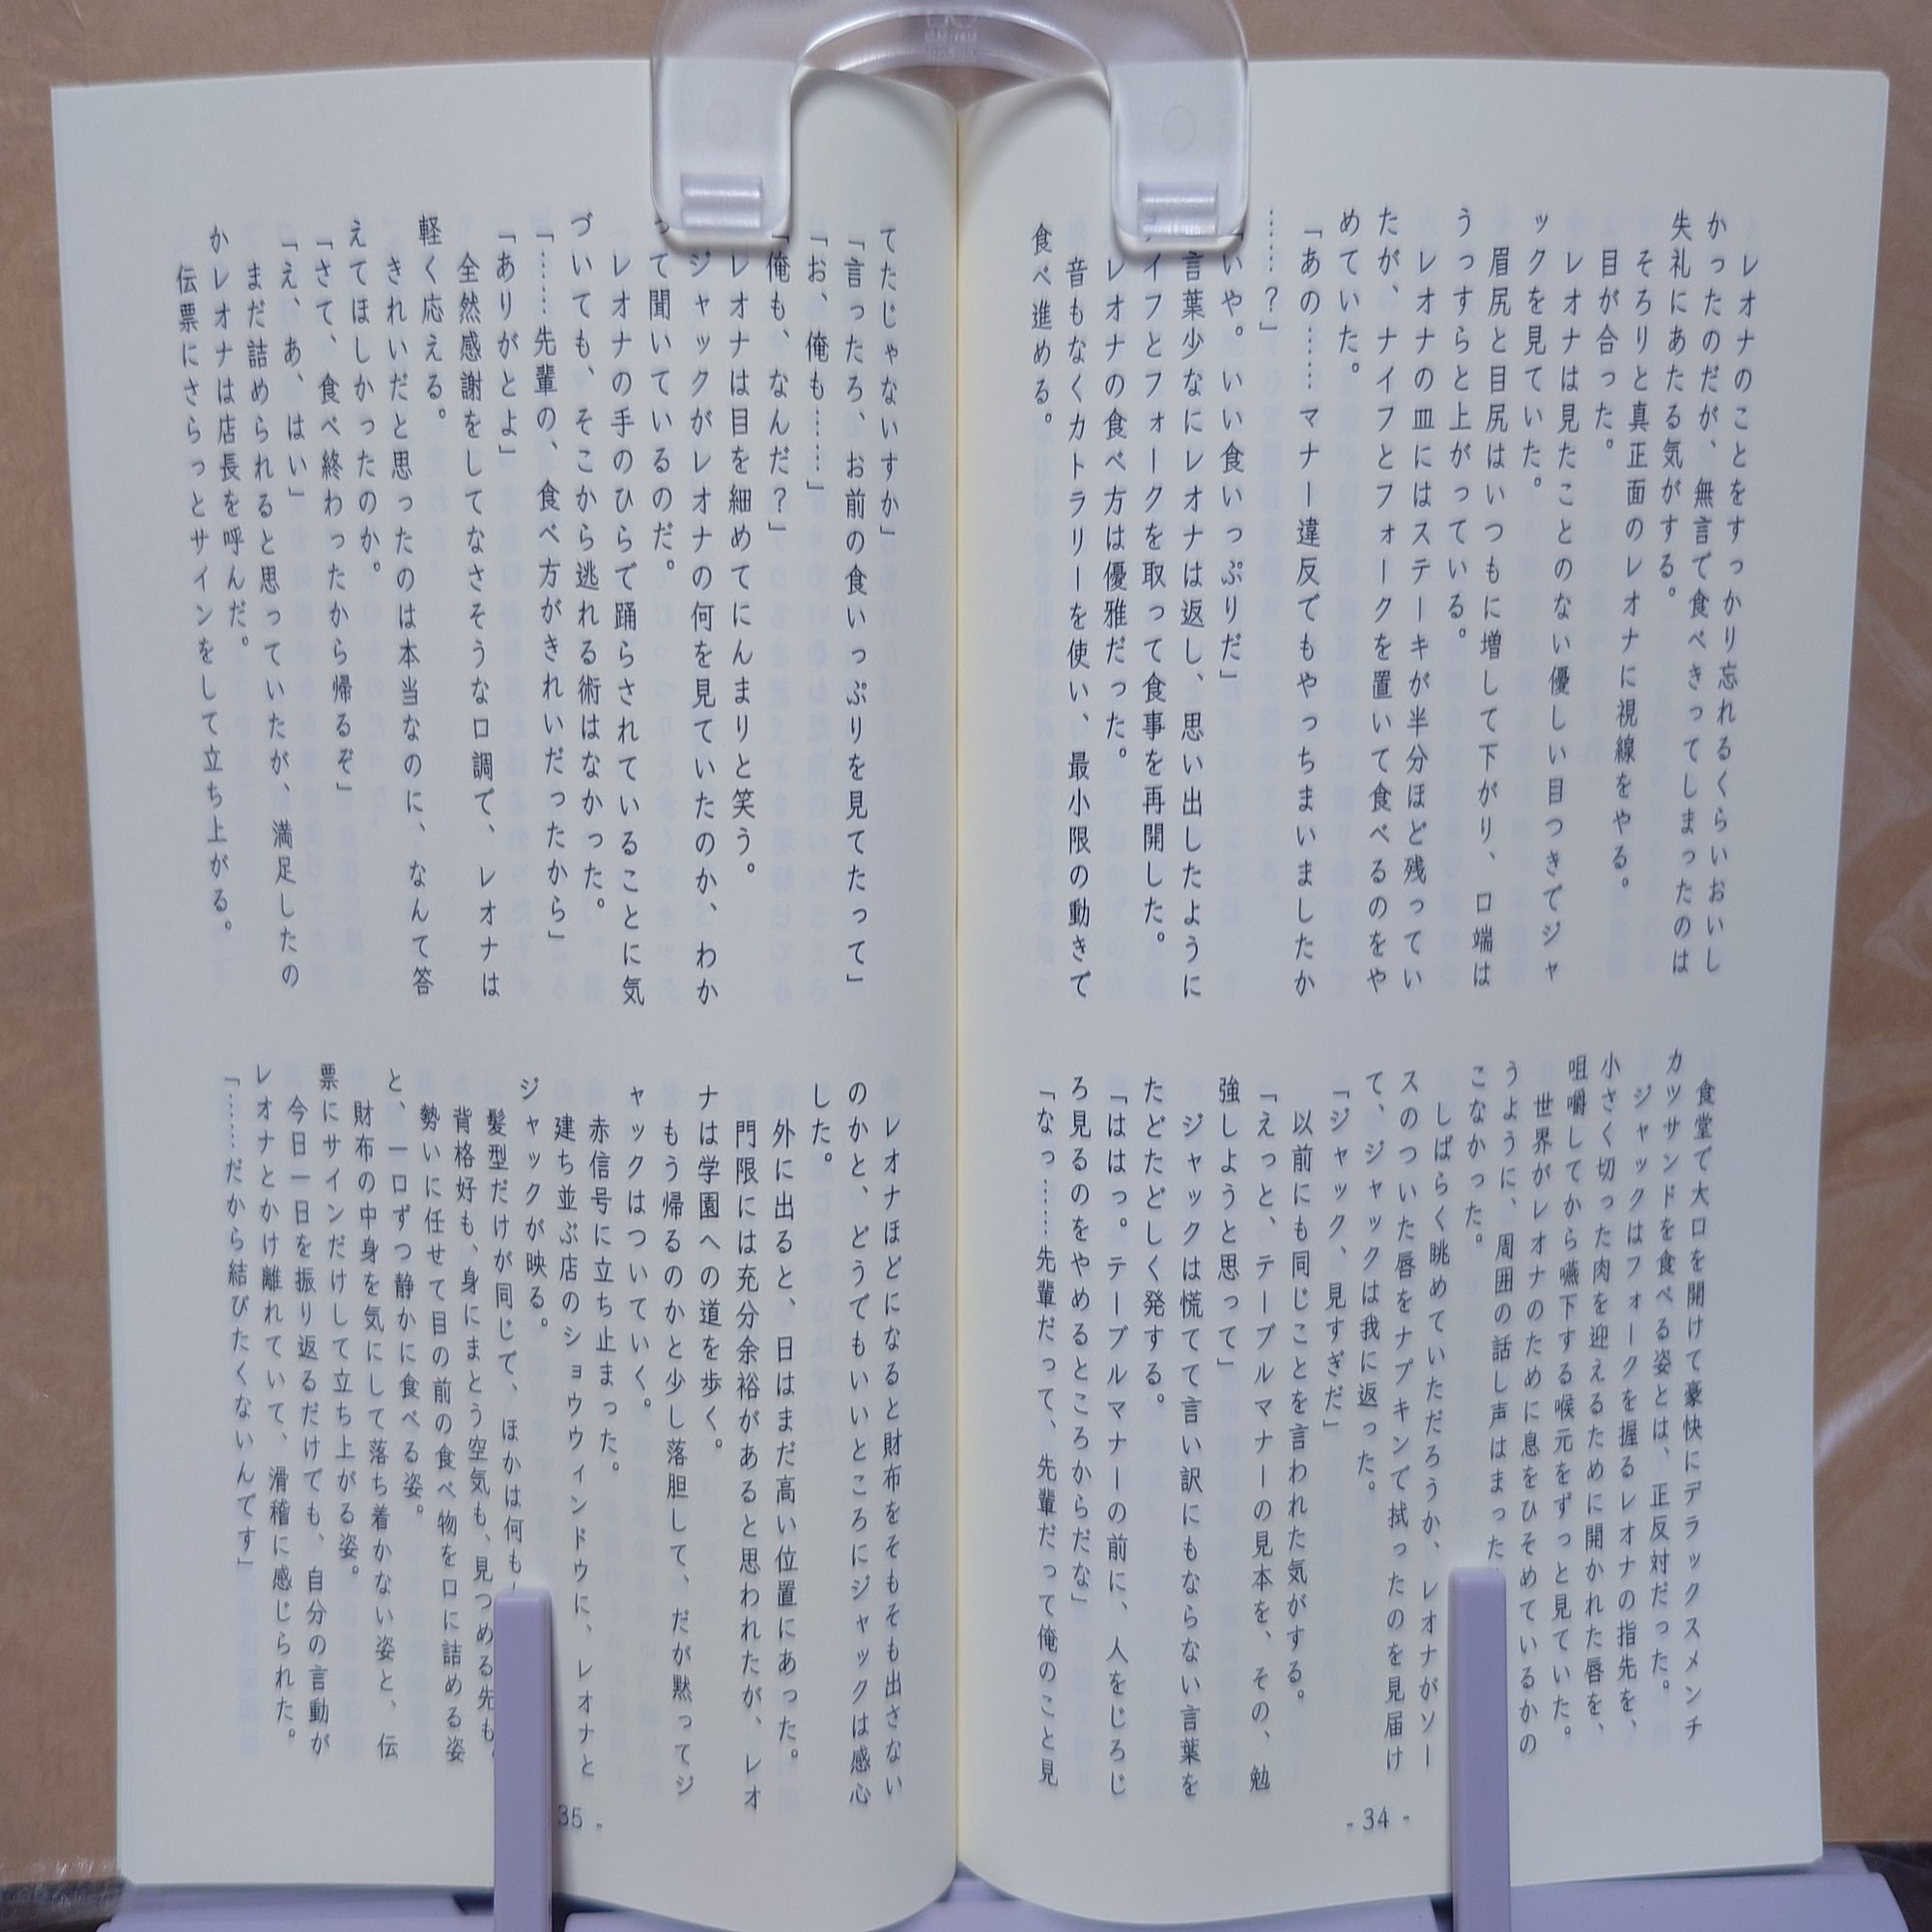 レオナのことをすっかり忘れるくらいおいし
かったのだが、無言で食べきってしまったのは
失礼にあたる気がする。
そろりと真正面のレオナに視線をやる。
目が合った。
レオナは見たことのない優しい目つきでジャ
ックを見ていた。
眉尻と目尻はいつもに増して下がり、口端は
うっすらと上がっている。
レオナの皿にはステーキが半分ほど残ってい
たが、ナイフとフォークを置いて食べるのをや
めていた。
「あの……マナー違反でもやっちまいましたか
……？」
「いや。いい食いっぷりだ」
言葉少なにレオナは返し、思い出したように
イフとフォークを取って食事を再開した。
レオナの食べ方は優雅だった。
音もなくカトラリーを使い、最小限の動きで
食べ進める。
食堂で大口を開けて豪快にデラックスメンチ
カツサンドを食べる姿とは、正反対だった。
ジャックはフォークを握るレオナの指先を、
小さく切った肉を迎えるために開かれた唇を、
咀嚼してから嚥下する喉元をずっと見ていた。
世界がレオナのために息をひそめているかの
ように、周囲の話し声はまった
こなかった。
しばらく眺めていただろうか、レオナがソー
スのついた唇をナプキンで拭ったのを見届け
て、ジャックは我に返った。
「ジャック、見すぎだ」
以前にも同じことを言われた気がする。
「えっと、テーブルマナーの見本を、その、勉
強しようと思って」
ジャックは慌てて言い訳にもならない言葉を
たどたどしく発する。
「ははっ。テーブルマナーの前に、人をじろじ
ろ見るのをやめるところからだな」
「なっ……先輩だって、先輩だって俺のこと見
- 34 -
てたじゃないすか」
「言ったろ、お前の食いっぷりを見てたって」
「お、俺も……」
「俺も、なんだ？」
レオナは目を細めてにんまりと笑う。
ジャックがレオナの何を見ていたのか、わか
って聞いているのだ。
レオナの手のひらで踊らされていることに気
づいても、そこから逃れる術はなかった。
「……先輩の、食べ方がきれいだったから」
「ありがとよ」
全然感謝をしてなさそうな口調で、レオナは
軽く応える。
きれいだと思ったのは本当なのに、なんて答
えてほしかったのか。
「さて、食べ終わったから帰るぞ」
「え、あ、はい」
まだ詰められると思っていたが、満足したの
かレオナは店長を呼んだ。
伝票にさらっとサインをして立ち上がる。
レオナほどになると財布をそもそも出さない
のかと、どうでもいいところにジャックは感心
した。
外に出ると、日はまだ高い位置にあった。
門限には充分余裕があると思われたが、レオ
ナは学園への道を歩く。
もう帰るのかと少し落胆して、だが黙ってジ
ャックはついていく。
赤信号に立ち止まった。
建ち並ぶ店のショウウィンドウに、レオナと
ジャックが映る。
髪型だけが同じで、ほかは何も
背格好も、身にまとう空気も、見つめる先も。
勢いに任せて目の前の食べ物を口に詰める姿
と、一口ずつ静かに食べる姿。
財布の中身を気にして落ち着かない姿と、伝
票にサインだけして立ち上がる姿。
今日一日を振り返るだけでも、自分の言動が
レオナとかけ離れていて、滑稽に感じられた。
「……だから結びたくないんです」
35 -